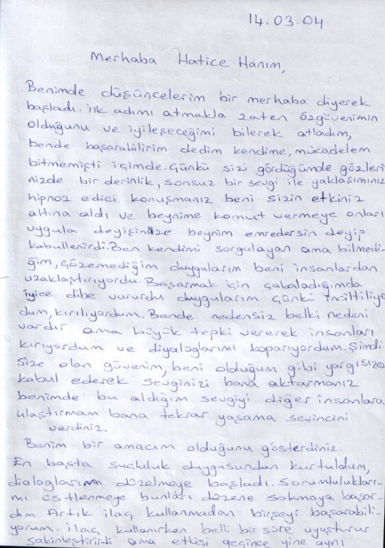 14.03.04
Merhaba Hatice Hanım,
Benimde düşüncelerim bir merhaba diyerek
başladı. İlk adımı atmakla zaten özgüvenimin
olduğunu ve iyileşeceğimi bilerek atladım,
bende başarabilirim dedim kendime, mücadelem
bitmemişti içimde. Çünkü sizi gördüğümde gözleri
nizde bir derinlik, sonsuz bir sevgi ile yaklaşımınız
hipnoz edici konuşmanız beni sizin etkiniz
altına aldı ve beynime komut vermeye onları
uygula deyişinize beynim emredersin deyip
kabullenirdi. Ben kendimi sorgulayan ama bilmedi-
ğim, çözemediğim duygularım beni insanlardan
uzaklaştırıyordu. Başarmak için çabaladığımda
iyice dibe vururdu duygularım çünkü inciltiliyo
dum, kırılıyordum. Bende nedensiz belki nedeni
vardır ama büyük tepki vererek insanları
kırıyordum ve diyaloglarımı koparıyordum. Şimdi
size olan güvenim, beni olduğum gibi yargısızca
kabul ederek sevginizi bana aktarmanız
benimde bu aldığım sevgiyi diğer insanlara
ulaştırmam bana tekrar yaşama sevincini
verdiniz.
Benim bir amacım olduğunu gösterdiniz
En başta suçluluk duygusundan kurtuldum,
dialoglarım düzelmeye başladı. Sorumlulukları-
mı üstlenmeye bunları düzene sokmaya başar-
dım. Artık ilaç kullanmadan birşeyi başarabili-
yorum. ilaç kullanırken belli bir süre uyuşturur
sakinleştirirdi ama etkisi geçince yine aynı